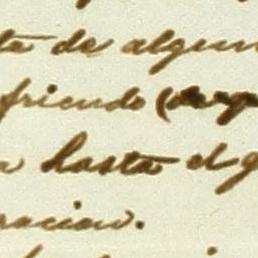 ta de algun
friendo (
a hasta el g
racion.